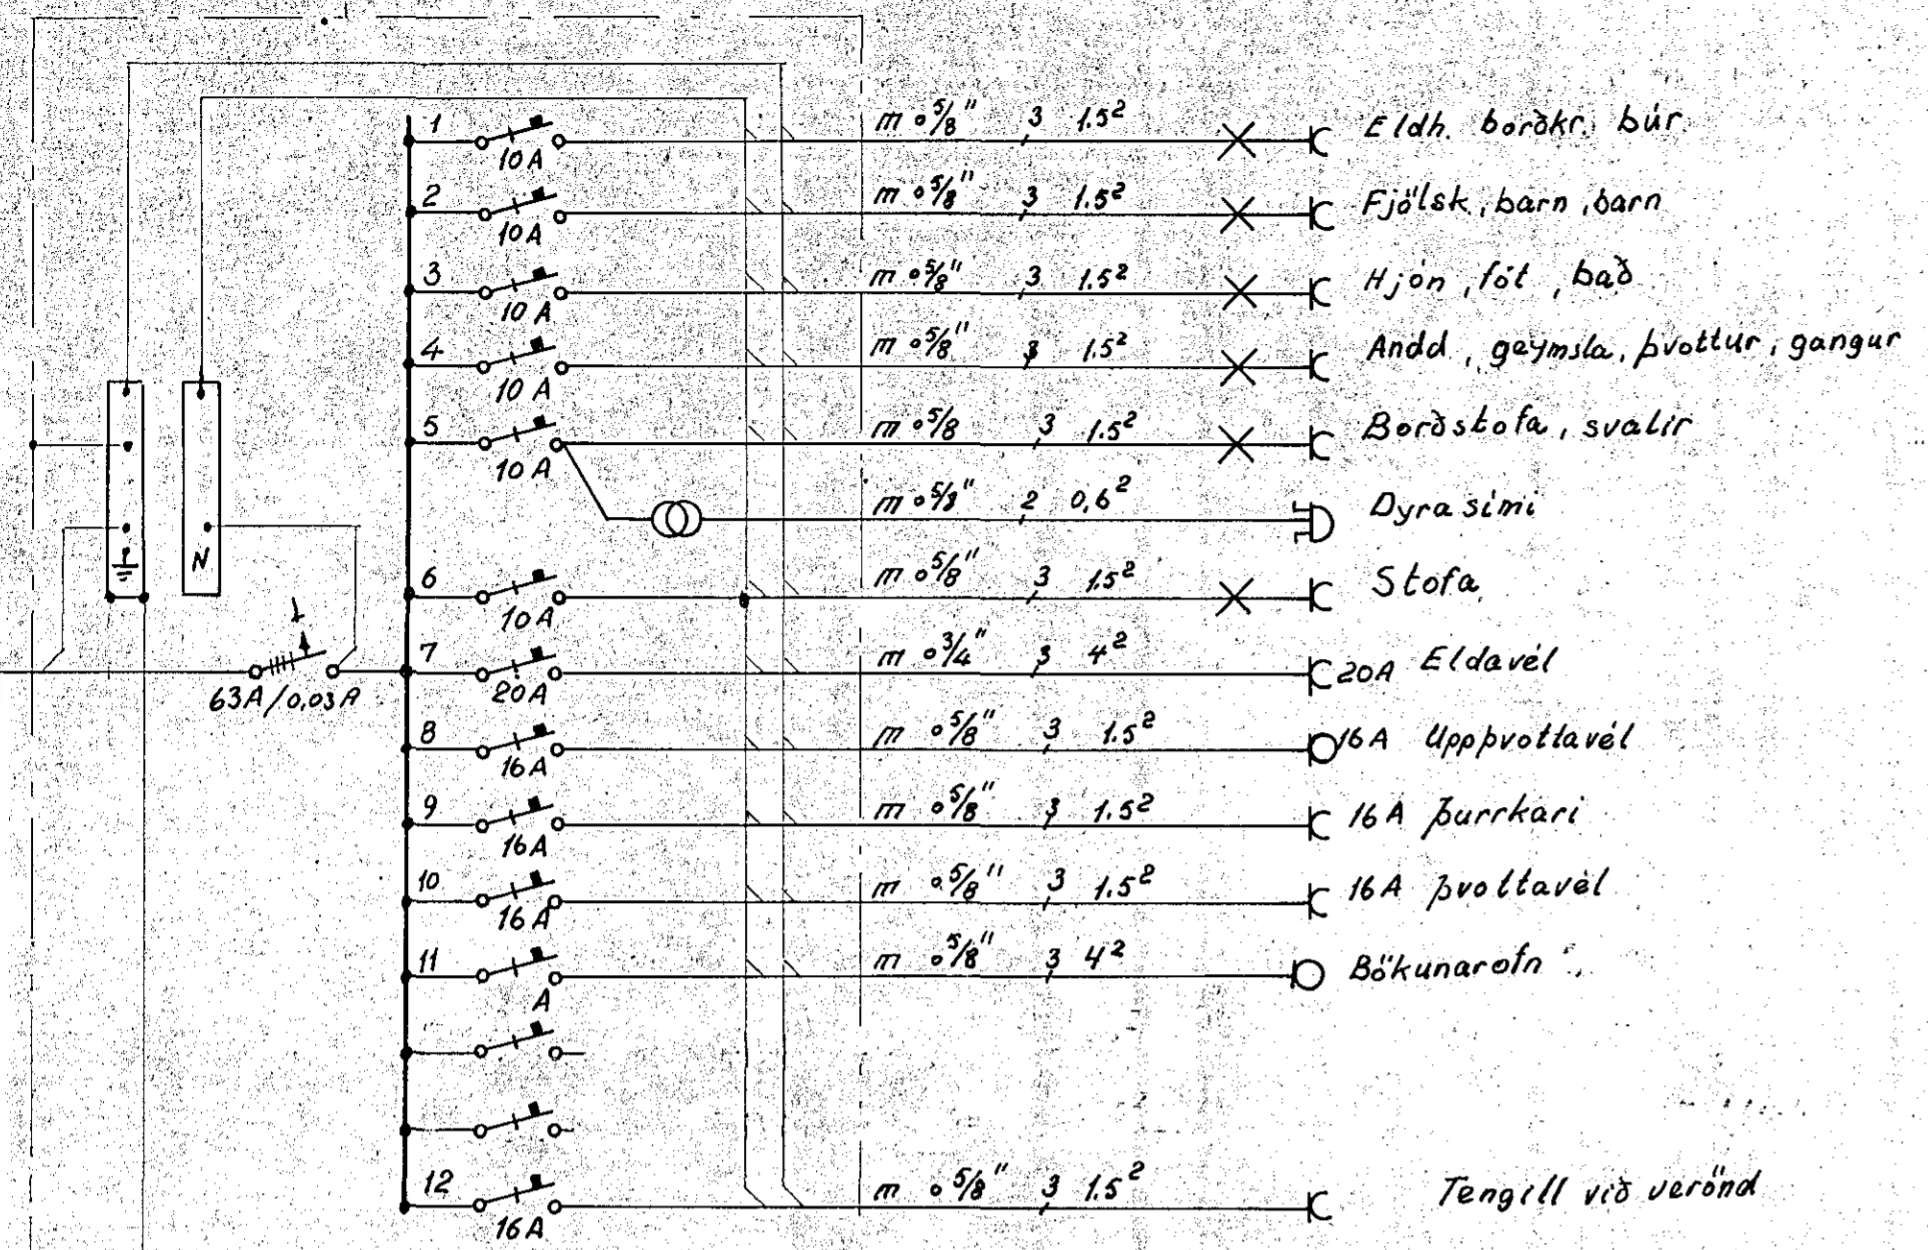 1 10A m ∘ 5/8" 3 1.5² Eldh. borðkr. búr
2 10A m ∘ 5/8" 3 1.5² Fjölsk, barn, barn
3 10A m ∘ 5/8" 3 1.5² Hjón, föt, bað
4 10A m ∘ 5/8" 3 1.5² Andd, geymsla, þvottur, gangur
5 10A m ∘ 5/8 3 1.5² Borðstofa, svalir
m ∘ 5/8" 2 0,6² Dyrasimi
N
6 10A m ∘ 5/8" 3 1.5² Stofa
63A/0,03A
7 20A m ∘ 3/4" 3 4² 20A Eldavél
8 16A m ∘ 5/8" 3 1.5² 16A Uppþvottavél
9 16A m ∘ 5/8" 3 1.5² 16A þurrkari
10 16A m ∘ 5/8" 3 1.5² 16A þvottavél
11 A m ∘ 5/8" 3 4² Bökunarofn
12 16A m ∘ 5/8" 3 1.5² Tengill við verönd